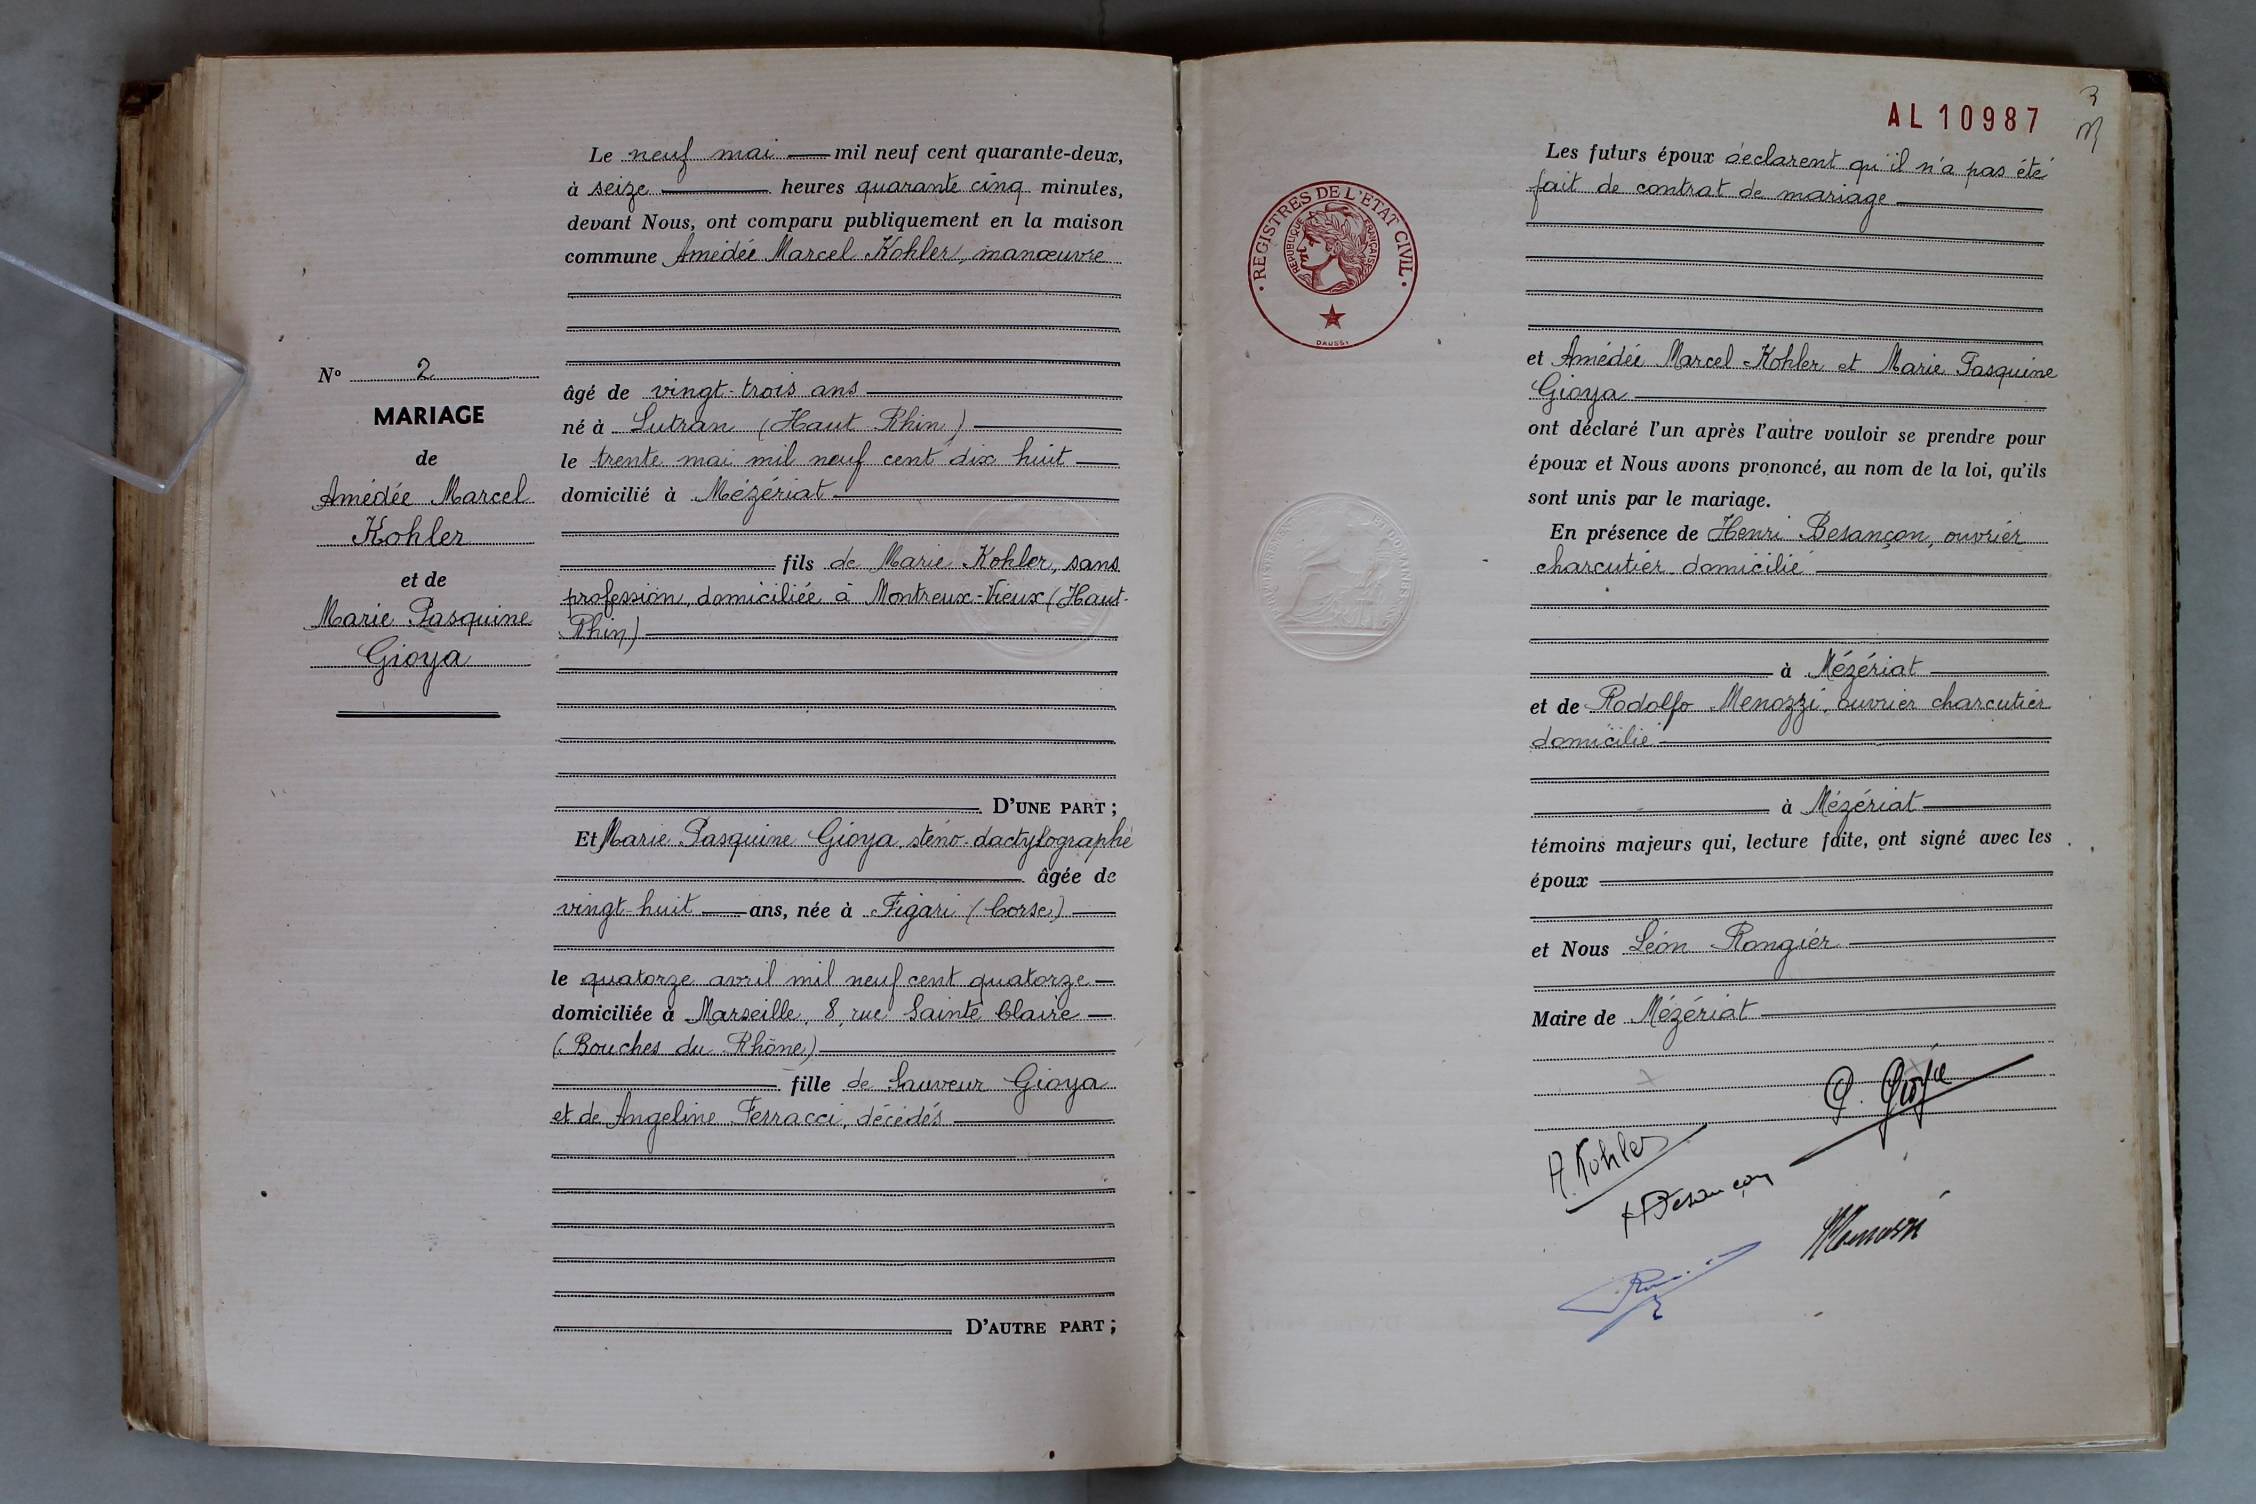 Le neuf mai mil neuf cent quarante-deux,
à seize heures quarante cinq minutes,
devant Nous, ont comparu publiquement en la maison
commune Amédée Marcel Kohler, manœuvre
âgé de vingt-trois ans
né à Lutran (Haut Rhin)
le trente mai mil neuf cent dix huit
domicilié à Mézériat
fils de Marie Kohler, sans
profession, domiciliée à Montreux-Vieux (Haut-
Rhin)
D'UNE PART ;
Et Marie Pasquine Gioya, sténo-dactylographe
âgée de
vingt-huit ans, née à Figari (Corse)
le quatorze avril mil neuf cent quatorze
domiciliée à Marseille, 8, rue Sainte Claire
(Bouches du Rhône)
fille de Sauveur Gioya
et de Angeline Ferracci, décédés
D'AUTRE PART ;
N° 2
MARIAGE
de
Amédée Marcel
Kohler
et de
Marie Pasquine
Gioya
AL 10987
3
REGISTRES DE L'ÉTAT CIVIL
RÉPUBLIQUE FRANÇAISE
DAUSSY
Les futurs époux déclarent qu'il n'a pas été
fait de contrat de mariage
et Amédée Marcel Kohler et Marie Pasquine
Gioya
ont déclaré l'un après l'autre vouloir se prendre pour
époux et Nous avons prononcé, au nom de la loi, qu'ils
sont unis par le mariage.
En présence de Henri Besançon, ouvrier
charcutier domicilié
à Mézériat
et de Rodolfo Menozzi, ouvrier charcutier
domicilié
à Mézériat
témoins majeurs qui, lecture faite, ont signé avec les
époux
et Nous Léon Rongier
Maire de Mézériat
P. Gioya
A. Kohler
H Besançon
Menozzi